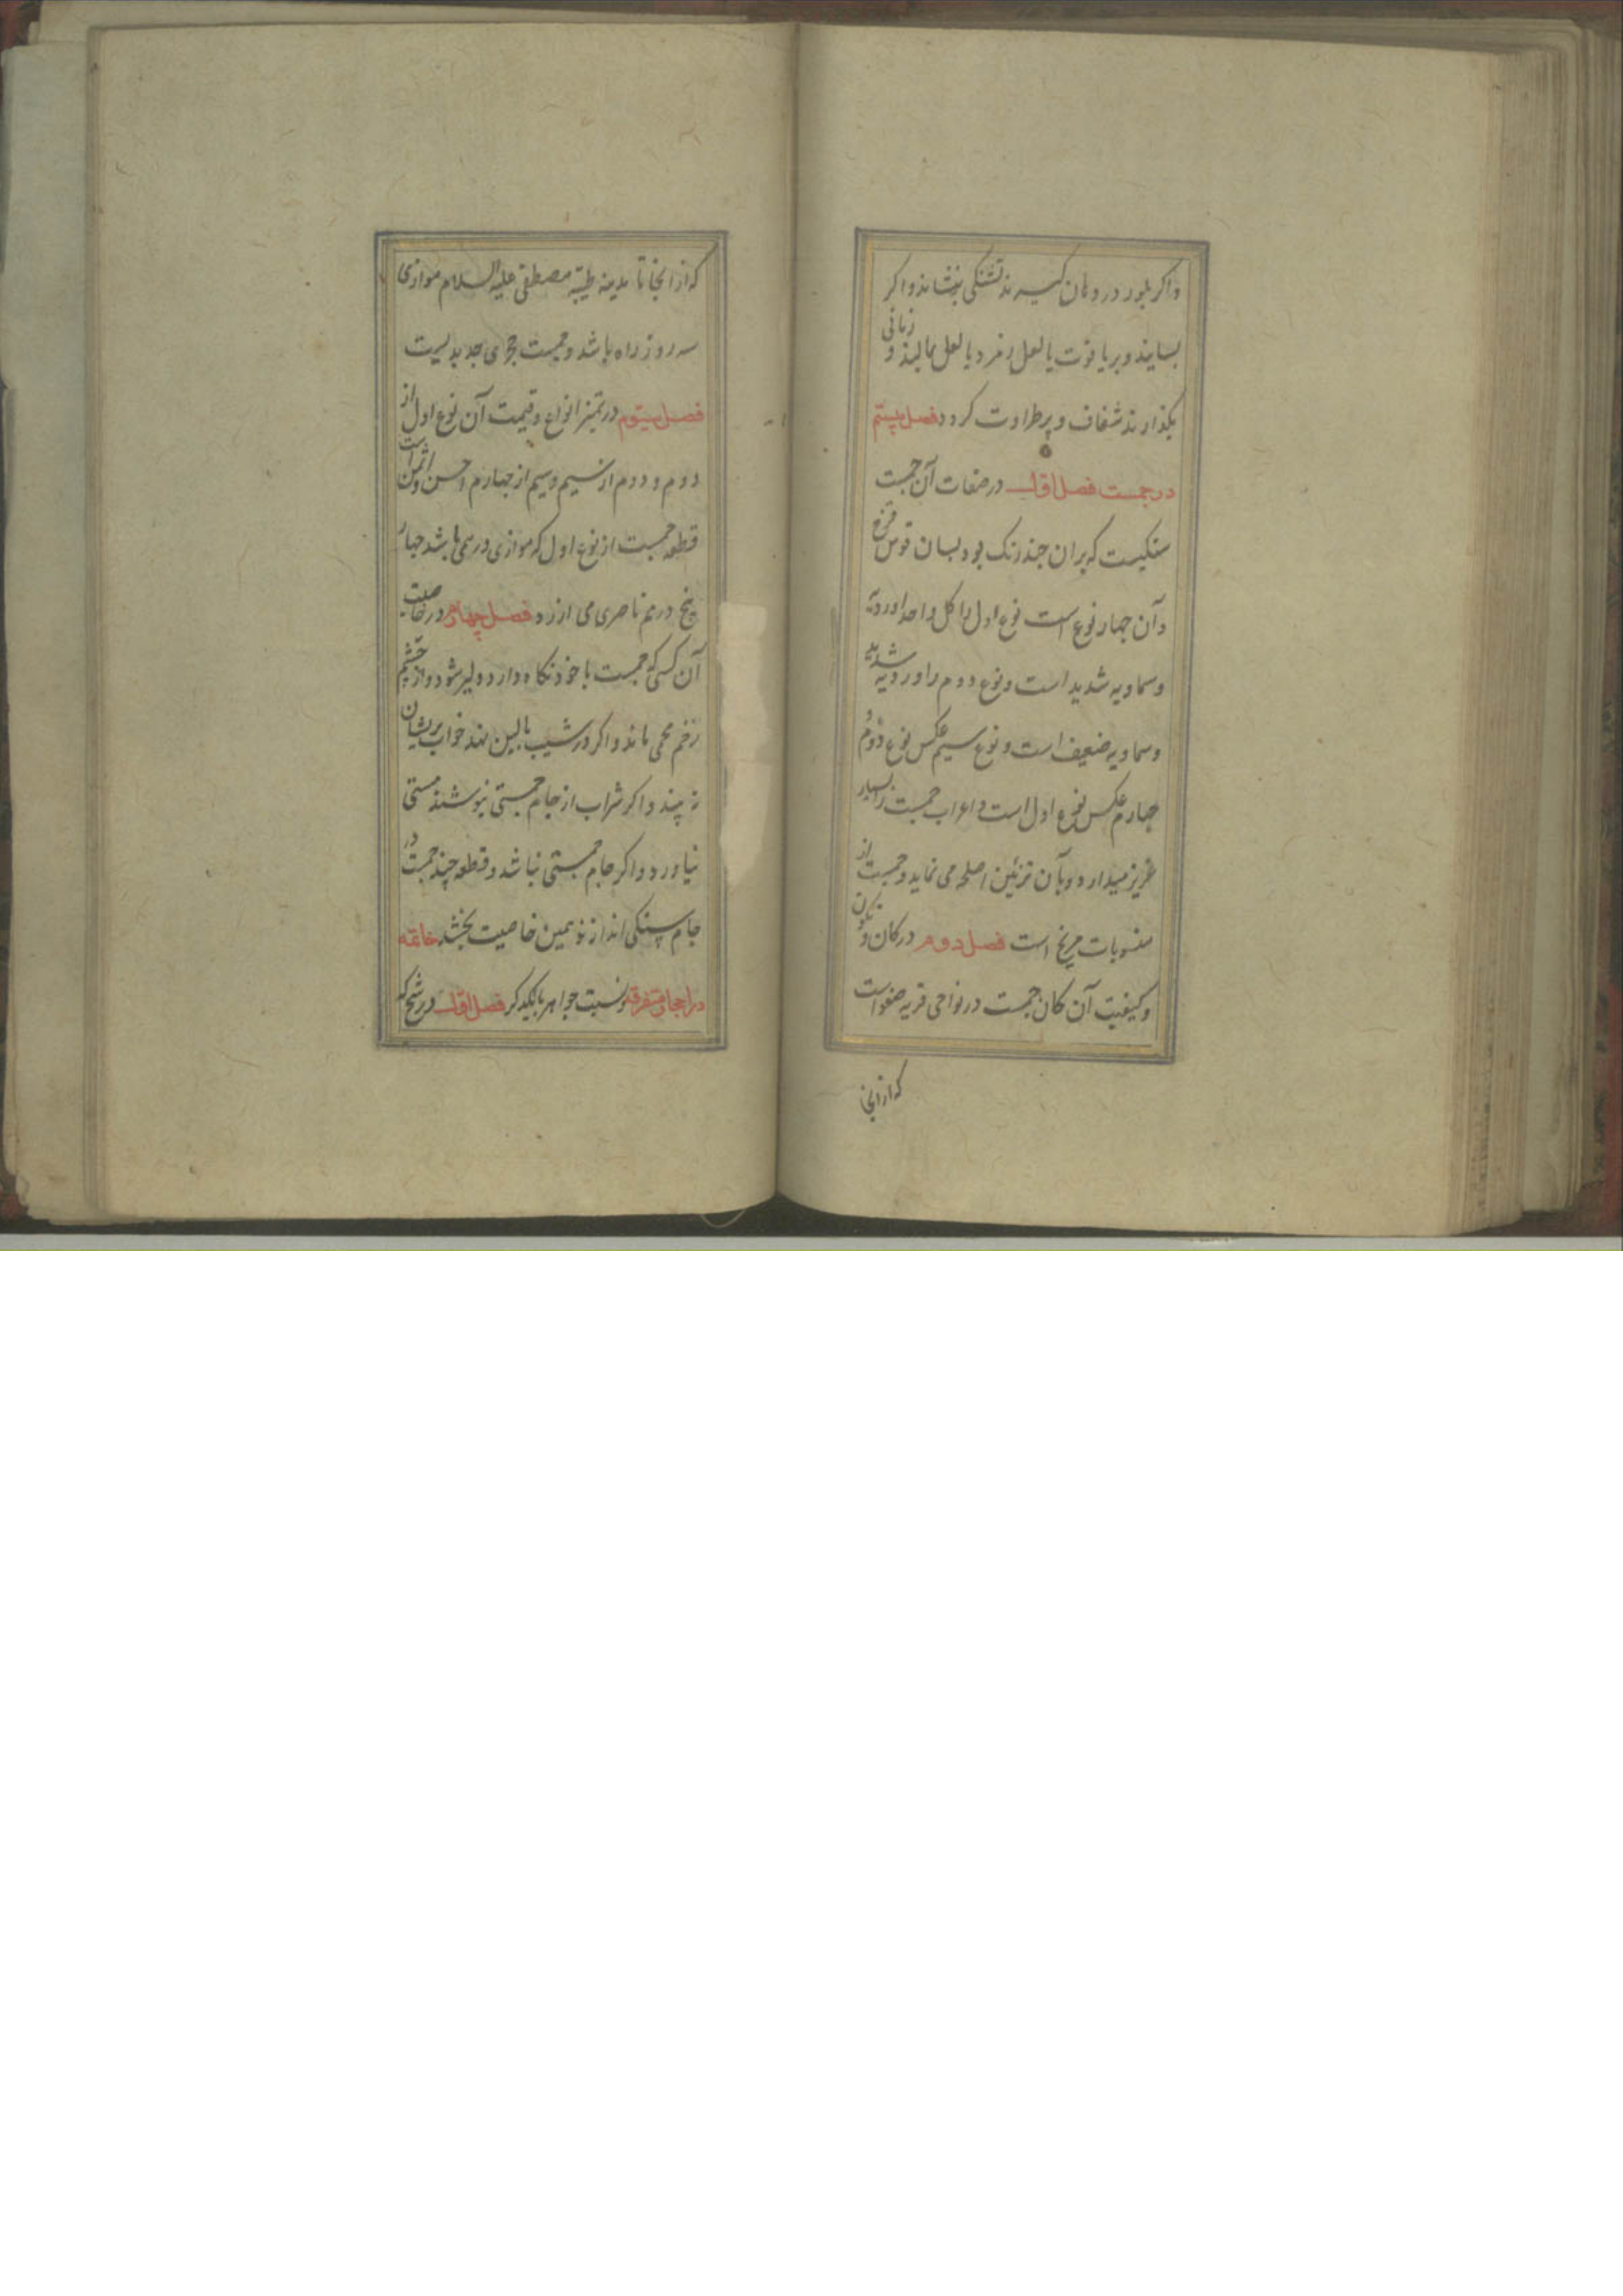 واکر بلور در دهان کیرند تشنکی بنشاند و اکر
بسایند و بر یاقوت یا لعل زمرد یا لعل بمالند و زمانی
بکذارند شفاف و پر طراوت کردد فصل بیستم
در جمست فصل اول در صفات آن جمست
سنکیست که بران چند رنک بود بسان قوس قزح
و آن چهار نوع است نوع اول را کل واحد اوردیه
و سماویه شدید است و نوع دوم را وردیه شدید
و سماویه ضعیف است و نوع سیم عکس نوع دوم و
چهارم عکس نوع اول است و اعراب جمست را بسیار
عزیز میدارد و بآن تزئین اصلحه می نماید و جمست از
منسوبات مریخ است فصل دوم در کان و تکون
و کیفیت آن کان جمست در نواحی قریه صفواست
که از انجا
که از انجا تا مدینه طیبه مصطفی علیه السلام موازی
سه روز راه باشد و جمست حجرای جدیدیست
فصل سیوم در تمیز انواع و قیمت آن نوع اول از
دوم و دوم از سیم و سیم از چهارم احسن و اثمن است
قطعه جمست از نوع اول که موازی درهمی باشد چهار
پنج درم ناصری می ارزد فصل چهارم در خاصیت
آن کسی که جمست با خود نکاه دارد دلیر شود و از چشم
زخم محمی ماند و اکر در شیب بالین نهد خواب پریشان
نه بیند و اکر شراب از جام جمستی نیوشند مستی
نیاورد و اکر جام جمستی نباشد و قطعه چند جمست در
جام سنکی اندازند همین خاصیت بخشد خاتمه
در احجار متفرقه و نسبت جواهر بایکدکر فصل اول در شرح که